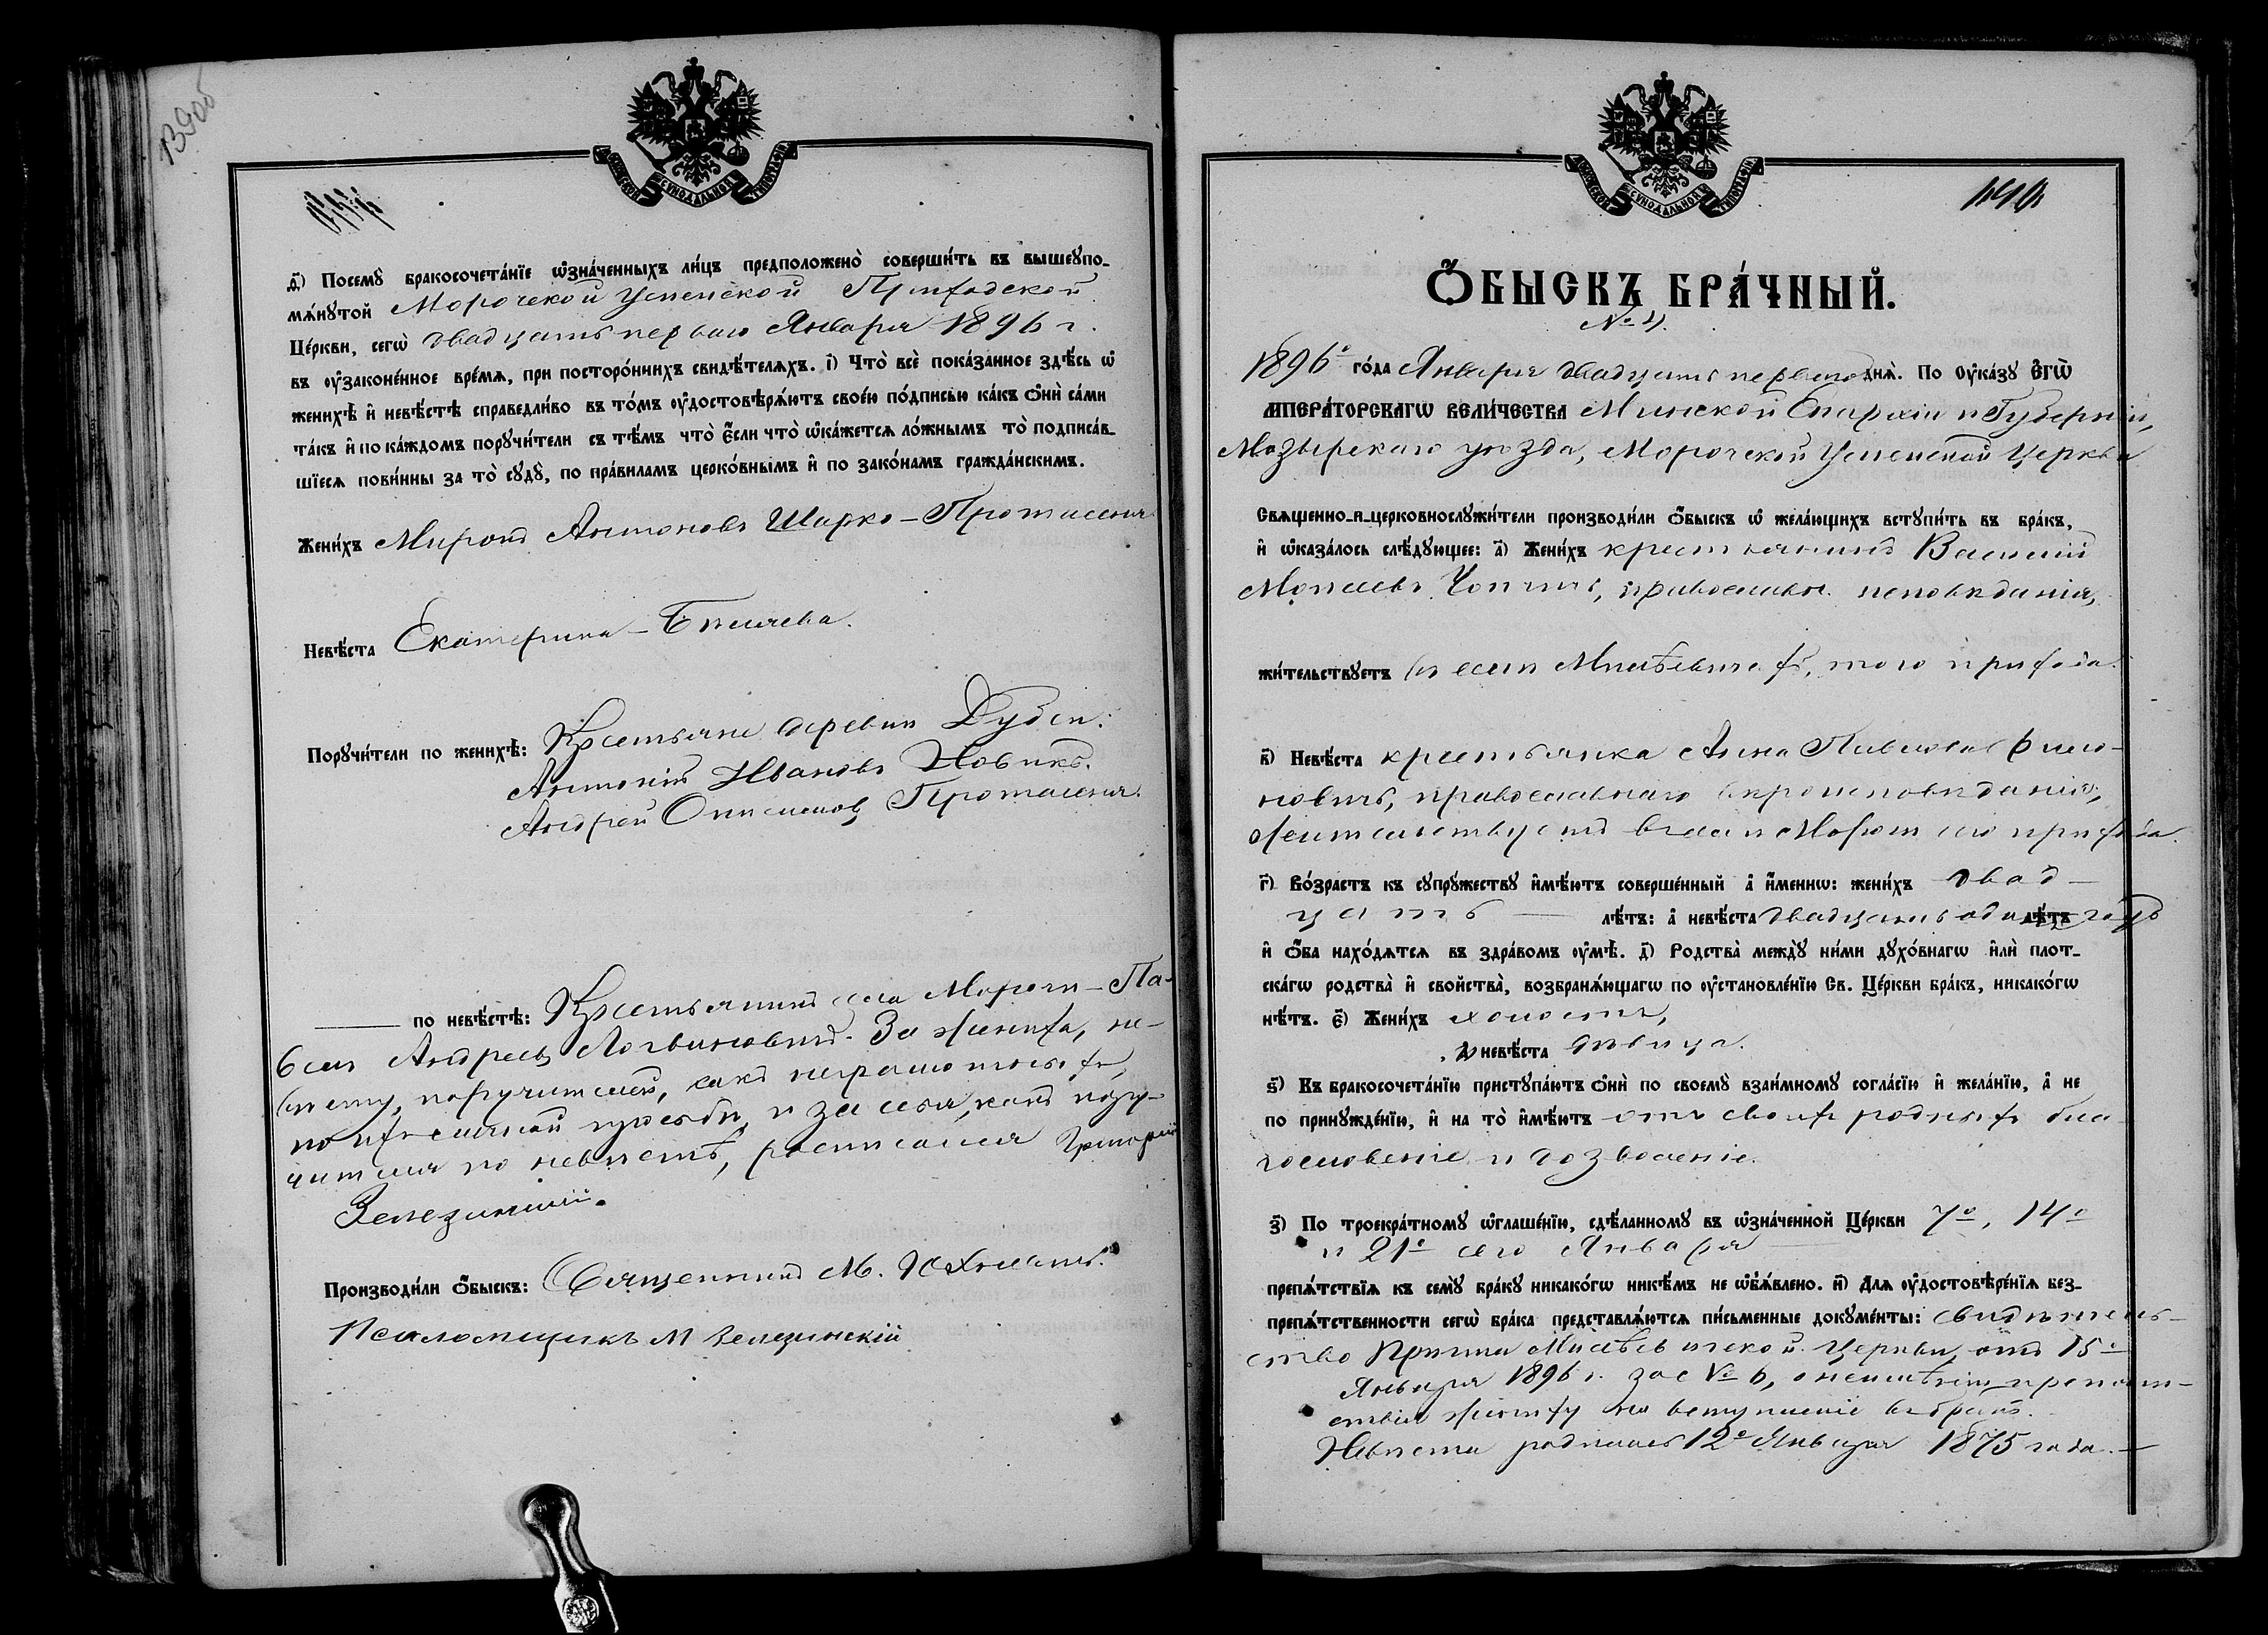 139об
д҃) Посемꙋ̀ бракосочета́нїе ѡ҆зна́ченныхъ ли́цъ предположено̀ соверши́ть въ вышеꙋпо-
мѧ́нꙋтой Морочской Успенской Приходской
Це́ркви, сегѡ̀ двадцать перваго Января 1896 г.
въ ᲂу҆законе́нное вре́мѧ, при посторо́ннихъ свидѣ́телѧхъ. і҃) Что̀ всѐ пока́занное здѣ́сь ѡ҆
женихѣ̀ и҆ невѣ́стѣ справедли́во въ то́мъ ᲂу҆достовѣрѧ́ютъ свое́ю по́дписью ка́къ ѻ҆нѝ са́ми
та́къ и҆ по ка́ждомъ поручи́тели съ тѣ́мъ что̀ є҆́сли что̀ ѡ҆ка́жетсѧ ло́жнымъ то̀ подписа́в-
шїесѧ пови́нны за то̀ сꙋдꙋ̀, по пра́виламъ церко́внымъ и҆ по зако́намъ гражда́нскимъ.
Жени́хъ Миронъ Антоновъ Шарко-Протасеня
Невѣ́ста Екатерина
Порꙋчи́тели по женихѣ̀: Крестьяне деревни
Антоній Ивановъ Новикъ.
Андрей Протасеня.
по невѣ́стѣ: Крестьянинъ села Морочи - Па-
велъ Андреевъ Логвиновичъ. За жениха, не-
вѣсту, поручителей, какъ неграмотныхъ,
по ихъ личной просьбѣ, и за себя, какъ пору-
читель по невѣстѣ, росписался Григорій
Зелезинскій.
Производи́ли ѻ҆́быскъ: Священникъ М.
Псаломщикъ М Зелезинскій
140
МОСКОВСКОЙ СѴНОДАЛЬНОЙ ТИПОГРАФІИ
Ѻ҆́БЫСКЪ БРА́ЧНЫЙ.
№ 4.
1896го го́да Января двадцать перваго днѧ̀. По ᲂу҆ка́зꙋ Є҆гѡ̀
И҆МПЕРА́ТОРСКАГѠ ВЕЛИ́ЧЕСТВА Минской Епархіи и Губерніи,
Мозырскаго уѣзда, Морочской Успенской Церкви
Свѧщенно-и-церковнослꙋжи́тели производи́ли ѻ҆́быскъ ѡ҆ жела́ющихъ встꙋпи́ть въ бра́къ,
и҆ ѡ҆каза́лось слѣ́дꙋющее: а҃) Жени́хъ крестьянинъ Василій
Моисеевъ православн. исповѣданія,
жи́тельствꙋетъ въ селѣ Милевичахъ, того прихода.
в҃) Невѣ́ста крестьянка Анна Павлова Фили-
новичъ, православнаго вѣроисповѣданія,
жительствуетъ въ селѣ Морочи сего прихода.
г҃) Во́зрастъ къ сꙋпрꙋ́жествꙋ и҆мѣ́ютъ соверше́нный а҆ и҆́меннѡ: жени́хъ двад-
цать лѣ́тъ: а҆ невѣ́ста двадцать одинъ лѣ́тъ годъ
и҆ ѻ҆́ба нахо́дѧтсѧ въ здра́вомъ ᲂу҆мѣ̀. д҃) Родства̀ междꙋ̀ ни́ми дꙋхо́внагѡ и҆лѝ плот-
ска́гѡ родства̀ и҆ свойства̀, возбранѧ́ющагѡ по ᲂу҆становле́нїю Св. Це́ркви бра́къ, никако́гѡ
нѣ́тъ. є҃) Жени́хъ холостъ,
а҆ невѣ́ста дѣвица.
ѕ҃) Къ бракосочета́нїю пристꙋпа́ютъ ѻ҆нѝ по своемꙋ̀ взаи́мномꙋ согла́сїю и҆ жела́нїю, а҆ не
по принꙋжде́нїю, и҆ на то̀ и҆мѣ́ютъ отъ своихъ родныхъ бла-
гословеніе и дозволеніе.
з҃) По троекра́тномꙋ ѡ҆глаше́нїю, сдѣ́ланномꙋ въ ѡ҆зна́ченной Це́ркви 7го, 14го
и 21го сего Января
препѧ́тствїѧ къ семꙋ̀ бра́кꙋ никако́гѡ никѣ́мъ не ѡ҆бꙗ҆́влено. и҃) Длѧ ᲂу҆достовѣре́нїѧ без-
препѧ́тственности сегѡ̀ бра́ка представлѧ́ютсѧ пи́сьменные докꙋме́нты: свидѣтель-
ство Причта Милевичской Церкви отъ 15го
Января 1896 г. за № 6, о неимѣніи препят-
ствій жениху на вступленіе въ бракъ.
Невѣста родилась 12го Января 1875 года.